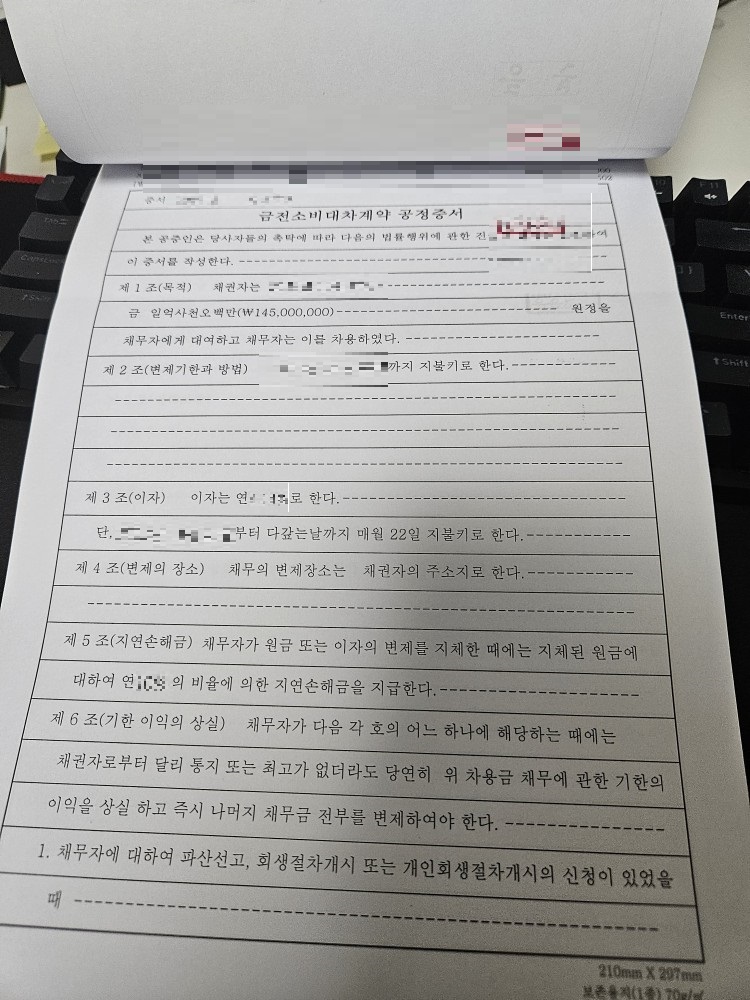 증서
금전소비대차계약 공정증서
본 공증인은 당사자들의 촉탁에 따라 다음의 법률행위에 관한 진 여
이 증서를 작성한다. ------------------------------
제 1 조(목적) 채권자는
금 일억사천오백만(₩145,000,000)------------------------------ 원정을
채무자에게 대여하고 채무자는 이를 차용하였다. ------------------------------
제 2 조(변제기한과 방법) 까지 지불키로 한다.---------------
------------------------------------------------------------
------------------------------------------------------------
------------------------------------------------------------
제 3 조(이자) 이자는 연 로 한다.------------------------------
단, 부터 다갚는날까지 매월 22일 지불키로 한다.-----------
제 4 조(변제의 장소) 채무의 변제장소는 채권자의 주소지로 한다.-----------
------------------------------------------------------------
제 5 조(지연손해금) 채무자가 원금 또는 이자의 변제를 지체한 때에는 지체된 원금에
대하여 연 의 비율에 의한 지연손해금을 지급한다.--------------------
제 6 조(기한 이익의 상실) 채무자가 다음 각 호의 어느 하나에 해당하는 때에는
채권자로부터 달리 통지 또는 최고가 없더라도 당연히 위 차용금 채무에 관한 기한의
이익을 상실 하고 즉시 나머지 채무금 전부를 변제하여야 한다. ---------------
1. 채무자에 대하여 파산선고, 회생절차개시 또는 개인회생절차개시의 신청이 있었을
때 ------------------------------------------------------------
210mm X 297mm
보존용지(1종) 70g/㎡
Enter
Shift
F11